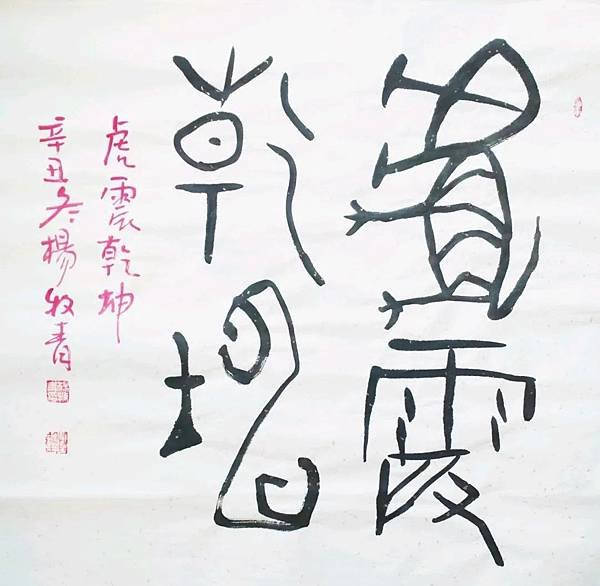 虎震
乾坤
虎震乾坤
辛丑冬楊牧青